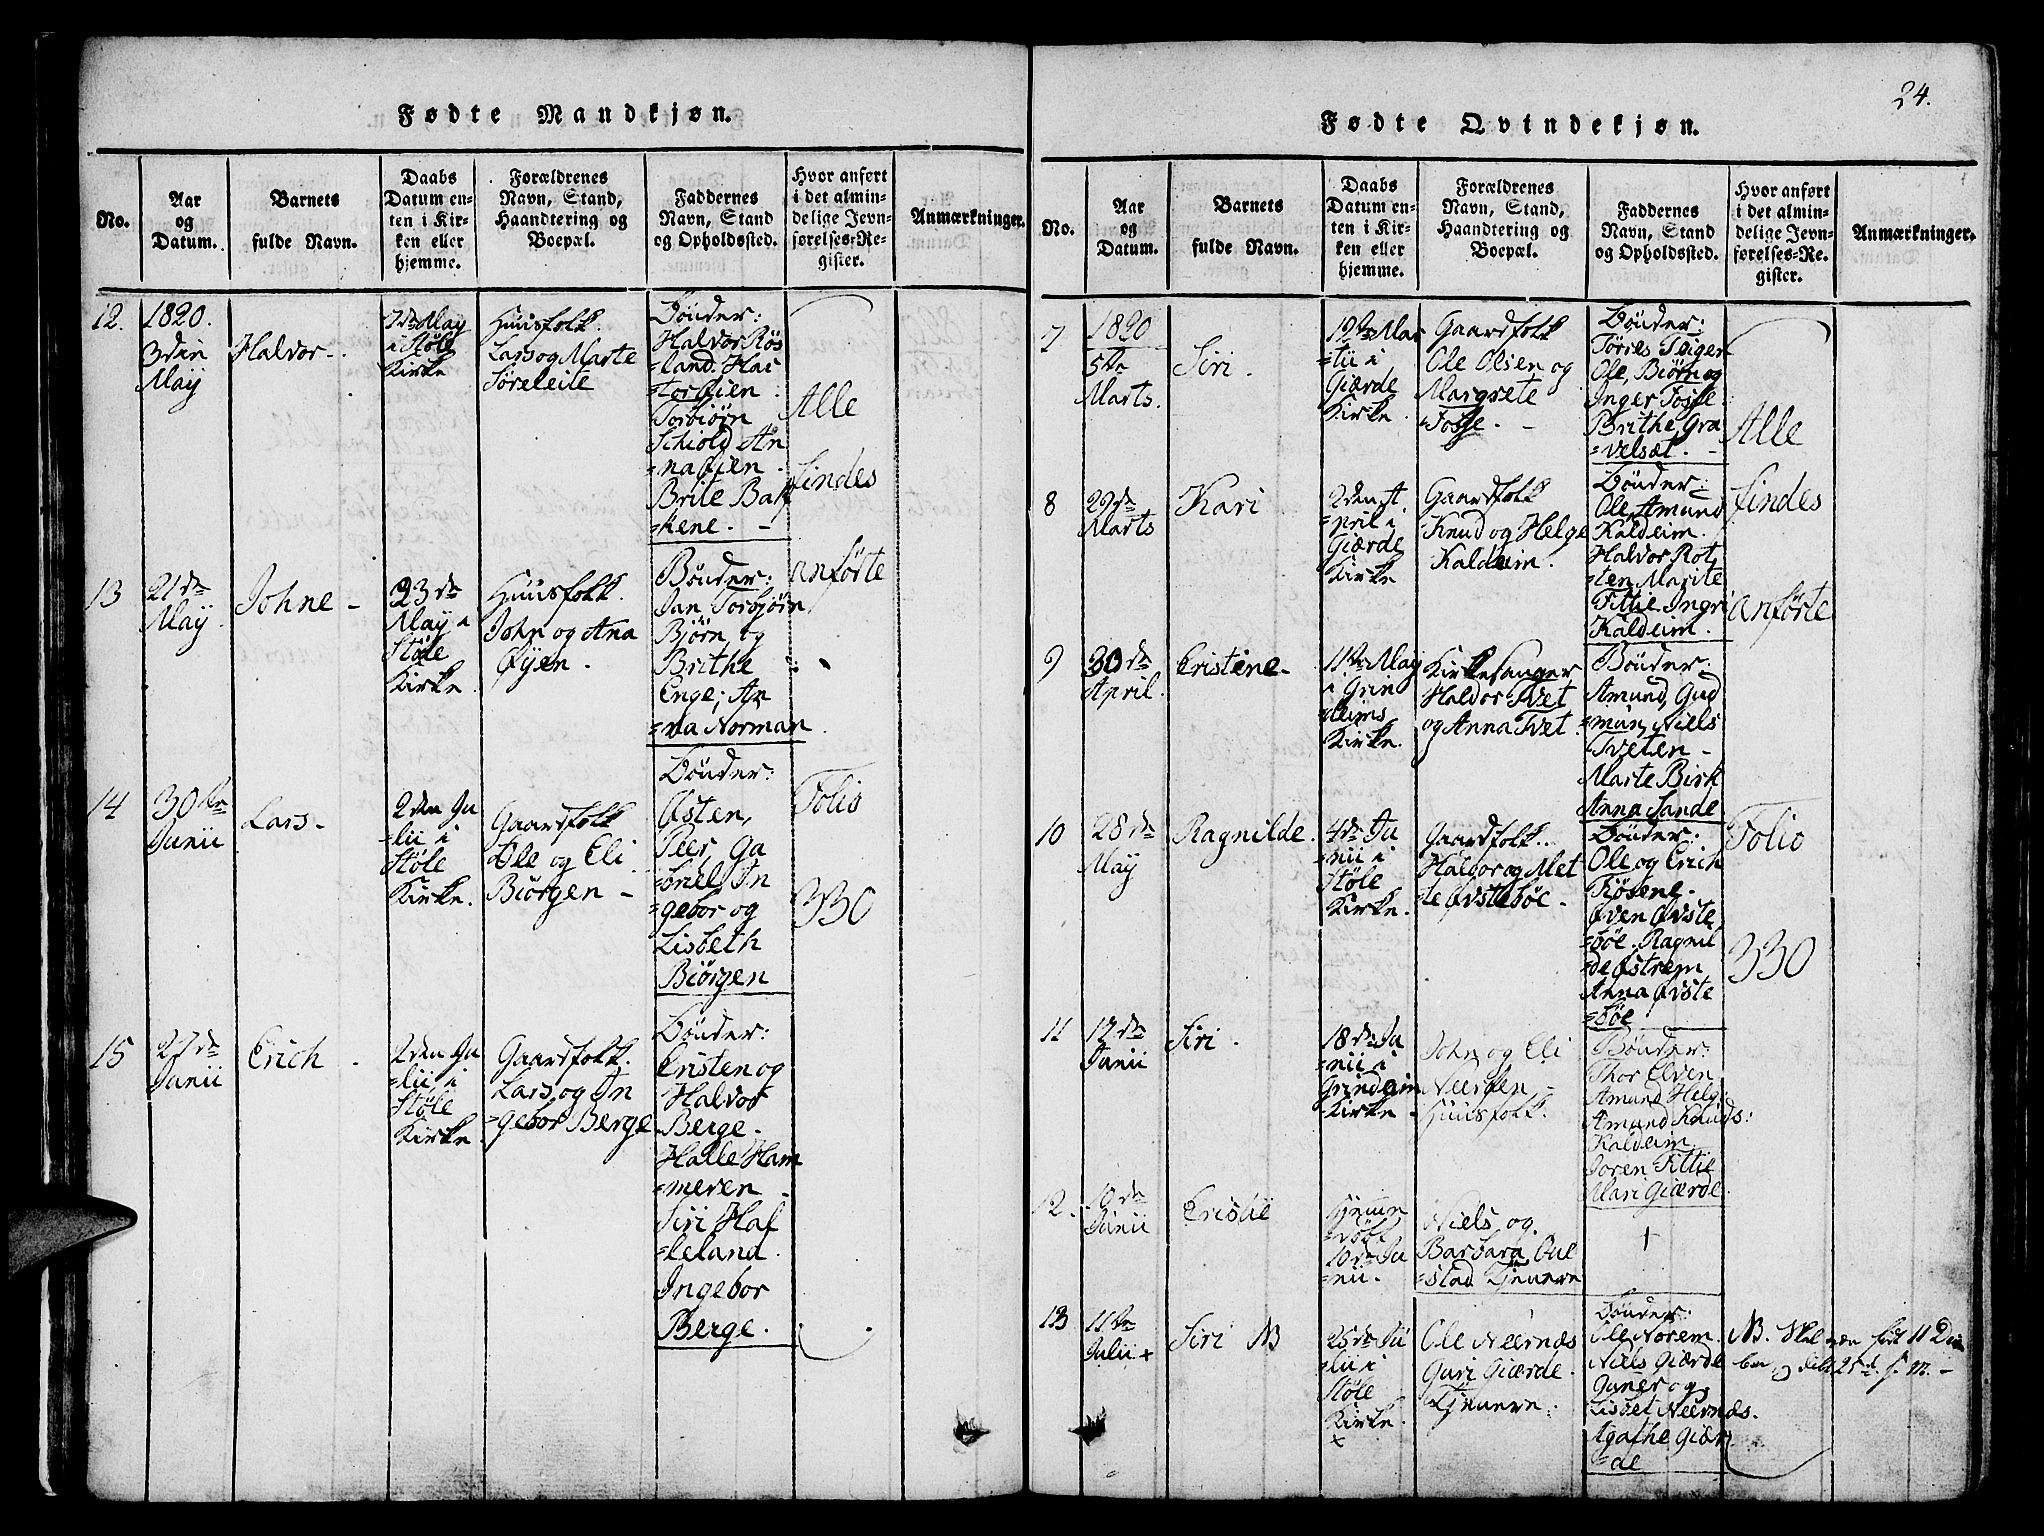 Fødte Mandkjøn.
No.
Aar
og
Datum.
Barnets
fulde Navn.
Daabs
Datum en-
ten i Kir-
ken eller
hjemme.
Forældrenes
Navn, Stand,
Haandtering og
Boepæl.
Faddernes
Navn, Stand
og Opholdssted.
Hvor anført
i det almin-
delige Jevn-
førelses-Re-
gister.
Anmærkninger.
12.
1820.
3din
May
Halvor.
7de May
i Støle
Kirke
Huusfolk.
Lars og Marte
Søreleite
Bønder:
Halvor Røs
=land.
Torbiørn
Schiold An
=na
Brite Bak
=kene. -
13
21de
May.
Johne -
23de
May i
Støle
Kirke.
Huusfolk.
John og Ana
Øyen.
Bønder:
Jan Torbjørn
Bjørn og
Brithe
Enge; An
=na Norman
14
30de
Junii
Lars -
2den Ju
=lii i
Støle
Kirke.
Gaardfolk
Ole og Eli
Biørgen -
Bønder:
Østen,
Peer, Ga
=briel In
=gebor og
Lisbeth
Biørgen
15
27de
Junii
Erich -
2den Ju
=lii i
Støle
Kirke.
Gaardfolk.
Lars og In
=gebor Berge
Bønder:
Cristen og
Halvor
Berge.
Halle Ham
=meren
Siri Hal
=leland.
Ingebor
Berge.
Alle
findes
anførte
Folio
330
24.
Fødte Qvindekjøn.
No.
Aar
og
Datum.
Barnets
fulde Navn.
Daabs
Datum en-
ten i Kir-
ken eller
hjemme.
Forældrenes
Navn, Stand,
Haandtering og
Boepæl.
Faddernes
Navn, Stand
og Opholdssted.
Hvor anført
i det almin-
delige Jevn-
førelses-Re-
gister.
Anmærkninger.
7
1820
5te
Marts.
Siri.
12te Mar
=tii i
Giærde
Kirke.
Gaardfolk
Ole Olsen og
Margrete
Fosse. -
Bønder:
Tørres
Ole, Biørn og
Inger Fosse.
Brithe Gra
=velsæt. -
8
29de
Marts
Kari
2den A
=pril i
Giærde
Kirke
Gaardfolk
Knud og Helge
Kaldeim.
Bønder:
Ole, Amund
Kaldeim.
Halvor Rot,
=ten Marite
Fittie, Ingri
Kaldeim.
9
30de
April.
Cristine-
11te May
i Grin
=deims
Kirke.
Kirkesanger
Haldor Tvet
og Anna Tvet.
Bønder:
Amund, Gud
=mun, Niels
Tveten -
Marte Birk
Anna Sande
10
28de
May
Ragnilde.
4de Ju
=nii i
Støle
Kirke.
Gaardfolk.
Haldor og Met
=te Øvstebøe -
Bønder:
Ole og Erich
Frøsene.
Øven Øvste
=bøe. Ragnil
=de Østrem
Anna Øvste
=bøe
11
17de
Junii
Siri.
18de Ju
=nii i
Grindeim
Kirke.
John og Eli
Neerken -
Huusfolk.
Bønder:
Thor Elven
Amund Helg:
Amund Knuds:
Kaldeim.
Joren Fittie
Mari Giærde.
12.
10de
Junii
Crisbie
Hjemme
=døbt
10de Ju
=nii.
Niels og
Barbara
=stad Tjenere
+
13
11te
Julii +
Siri NB
25de Ju
=lii i
Støle
Kirke.
+
Ole Neernæs
Guri Giærde.
Tjenere.
Bønder:
Ole Norem.
Niels Giærde
Guner og
Lisbet Neernæs.
Agathe Giær
=de
NB. Skal være født 11 De
25d. s. M. -
Alle
findes
anførte
Folio
330